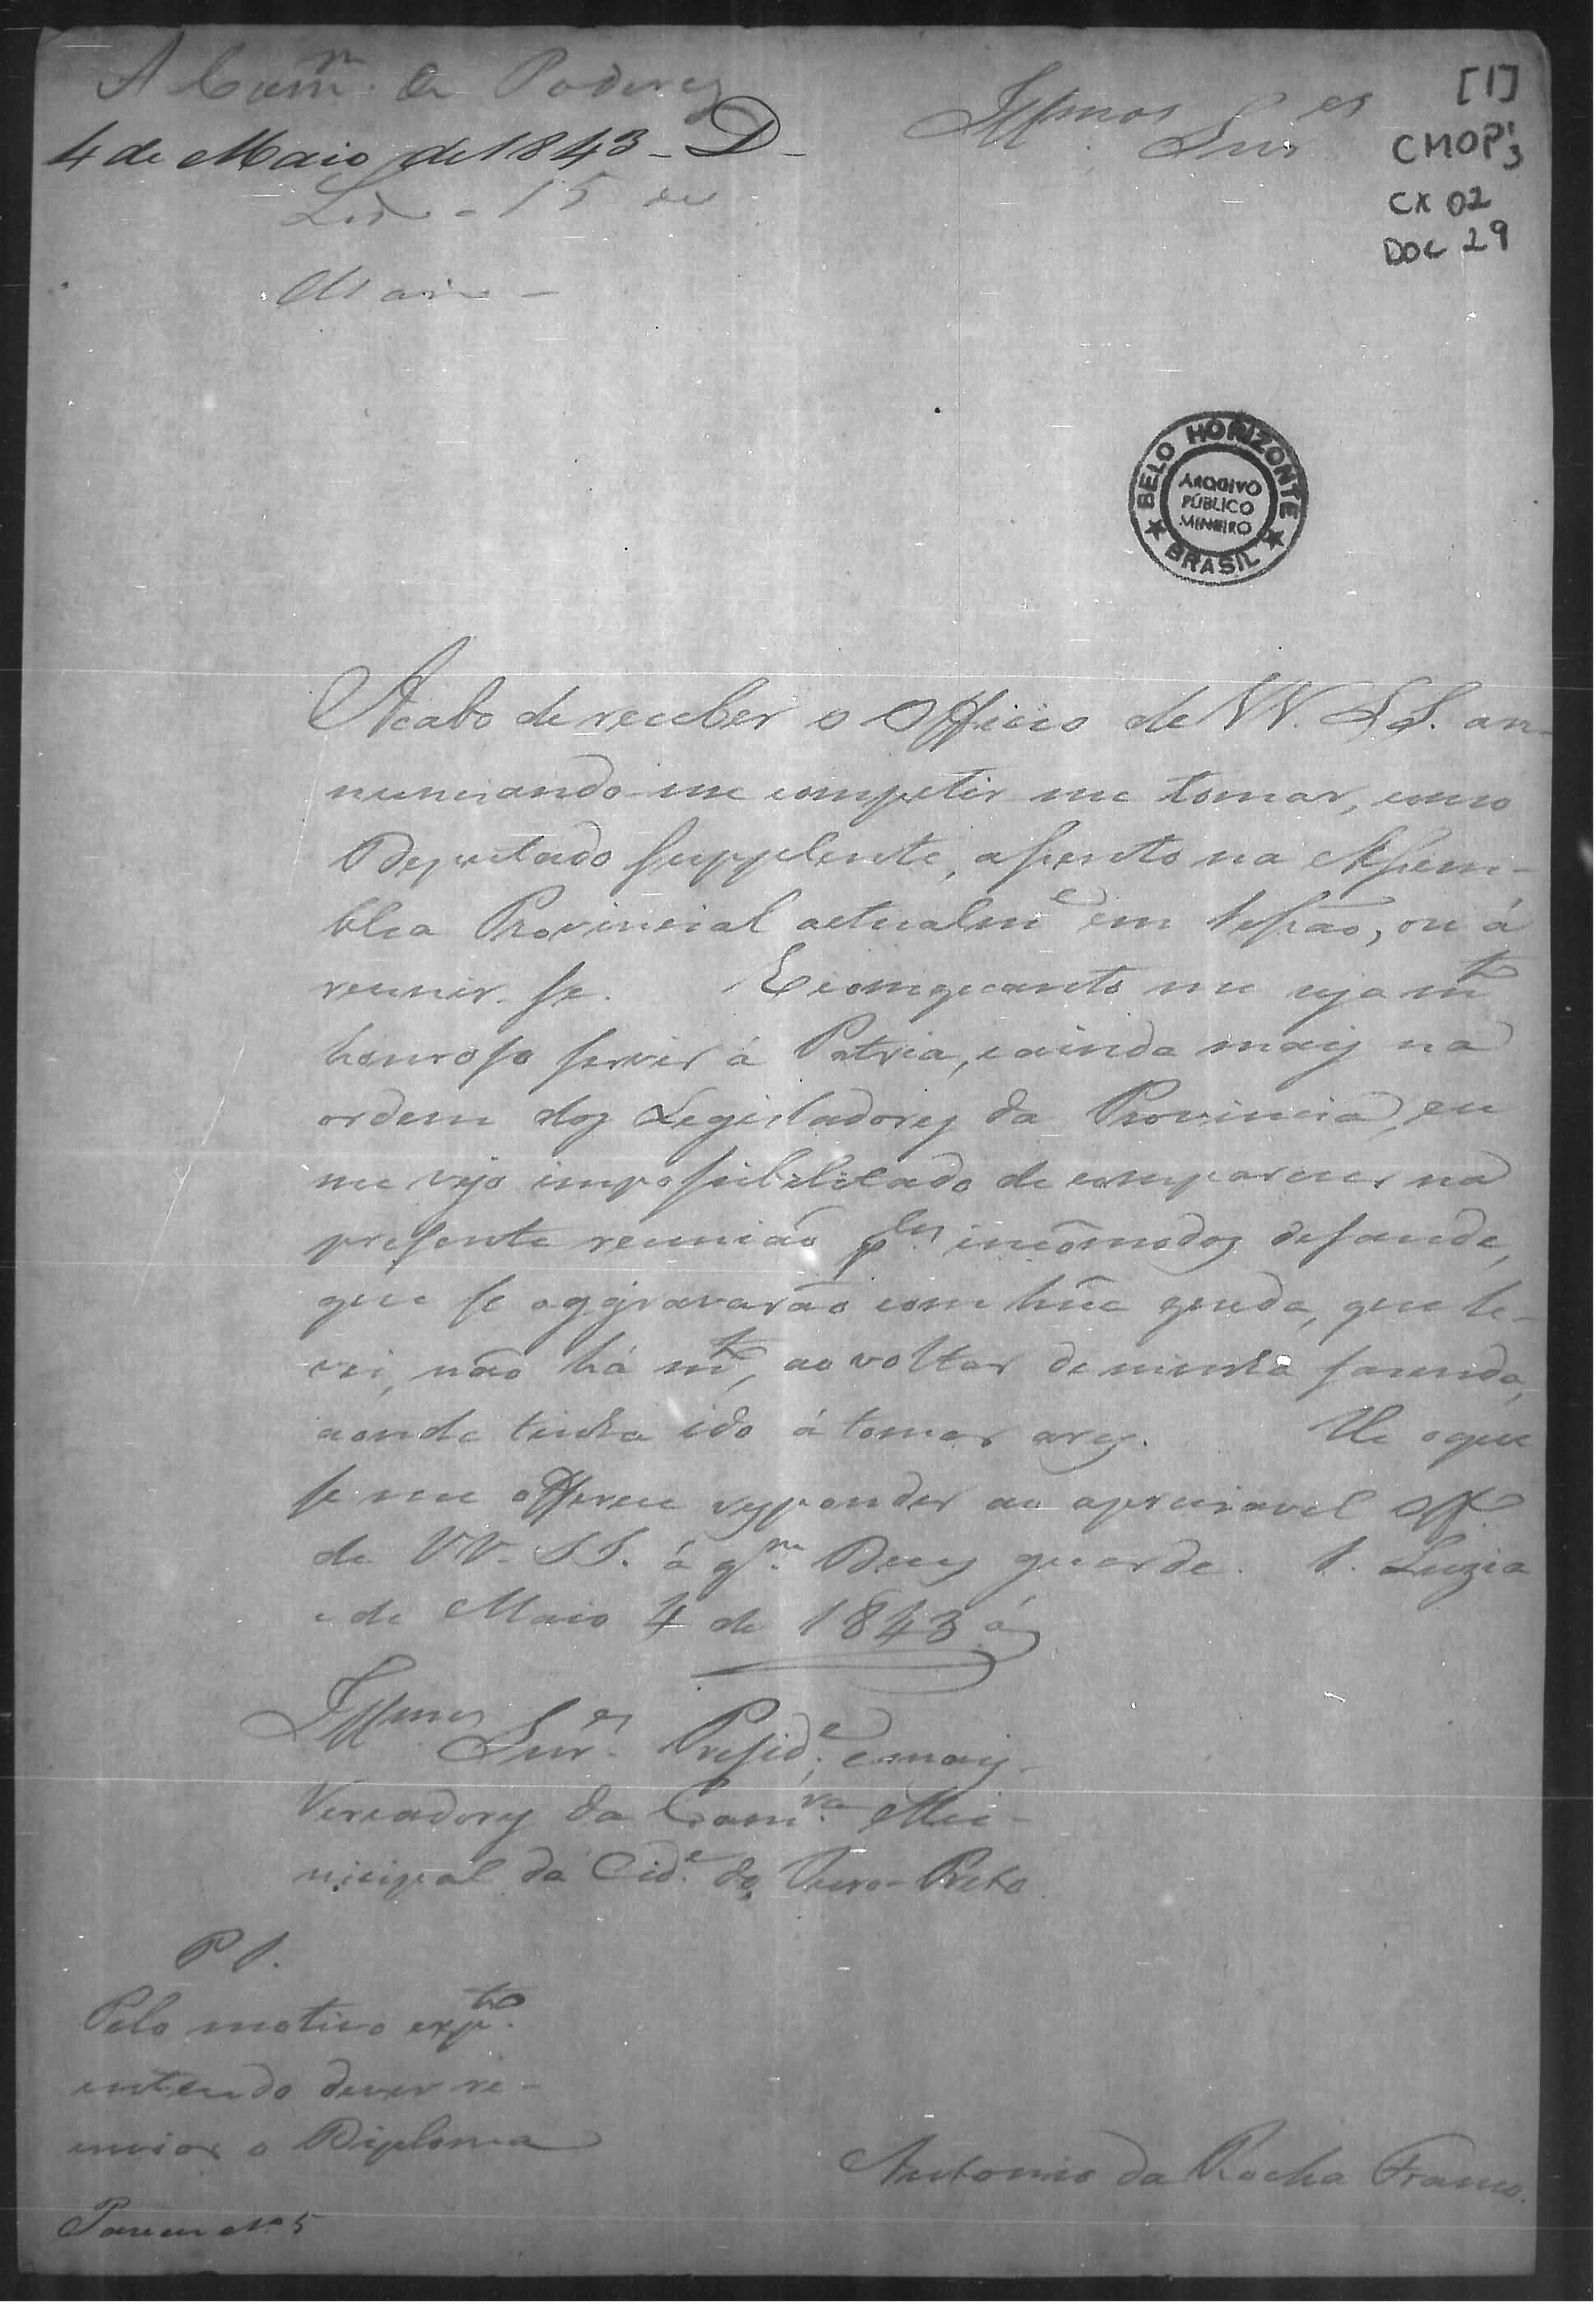 A Com.m de Poderes
4 de Maio de 1843 - D -
Illmos Snres
[1]
CMOP 3
CX 02
DOC 29
Lido - 15 de
Maio -
BELO HORIZONTE
ARQUIVO
PÚBLICO
MINEIRO
BRASIL
Acabo de receber o Officio de VV. SS. an-
nunciando-me competir me tomar, como
Deputado Supplente, assento na Assem-
blea Provincial actualme em Sessão, ou á
reunir-se. E comquanto me seja mto
honroso servir á Patria, e ainda mais na
ordem dos Legisladores da Provincia, eu
me vejo impossibilitado de comparecer na
presente reunião ples incõmodos de saude,
que se aggravarão com hũa queda, que le-
vei, não há mto, ao voltar de minha fazenda,
aonde tinha ido á tomar ares. He o que
se me offerece responder ao apreciavel Offo
de VV. SS. á qm Deus guarde. S. Luzia
de Maio 4 de 1843 á
Illmos Snres Preside e mais
Vereadores da Camra Mu-
nicipal da Cide do Ouro-Preto.
P S.
Pelo motivo expto
entendo dever re-
enviar o Diploma
Antonio da Rocha Franco.
Parecer No 5